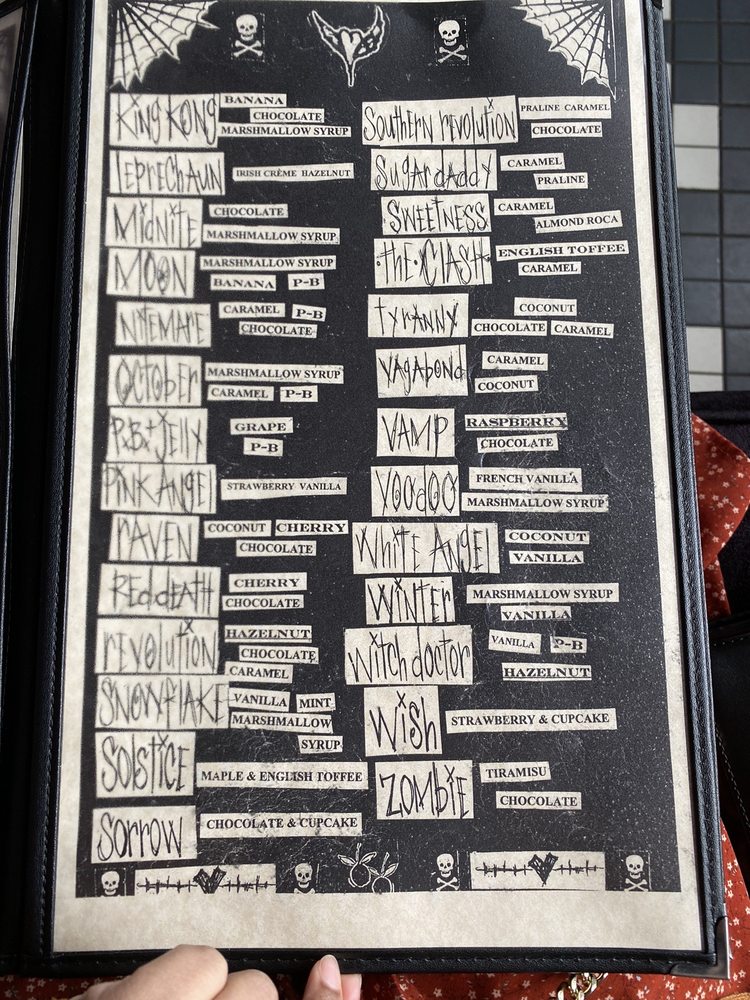 King Kong
BANANA
CHOCOLATE
MARSHMALLOW SYRUP
lepreCHAUN
IRISH CRÈME HAZELNUT
MidNiTE
CHOCOLATE
MARSHMALLOW SYRUP
MOON
MARSHMALLOW SYRUP
BANANA P-B
NiTEMARE
CARAMEL P-B
CHOCOLATE
OCTOBER
MARSHMALLOW SYRUP
CARAMEL P-B
P.B.+JELLY
GRAPE
P-B
PINK ANGEL
STRAWBERRY VANILLA
rAVEN
COCONUT CHERRY
CHOCOLATE
REd dEATH
CHERRY
CHOCOLATE
rEVOLUTiON
HAZELNUT
CHOCOLATE
CARAMEL
SNOWFLAKE
VANILLA MINT
MARSHMALLOW
SYRUP
SOLSTiCE
MAPLE & ENGLISH TOFFEE
SOrrOW
CHOCOLATE & CUPCAKE
Southern revolution
PRALINE CARAMEL
CHOCOLATE
Sugar daddy
CARAMEL
PRALINE
SWEETNESS
CARAMEL
ALMOND ROCA
·the·CLASH·
ENGLISH TOFFEE
CARAMEL
tyrANNY
COCONUT
CHOCOLATE CARAMEL
VAgAbONd
CARAMEL
COCONUT
VAMP
RASPBERRY
CHOCOLATE
VOOdOO
FRENCH VANILLA
MARSHMALLOW SYRUP
WhiTE ANGEl
COCONUT
VANILLA
WiNTEr
MARSHMALLOW SYRUP
VANILLA
Witch doctor
VANILLA P-B
HAZELNUT
WiSH
STRAWBERRY & CUPCAKE
ZOMBiE
TIRAMISU
CHOCOLATE